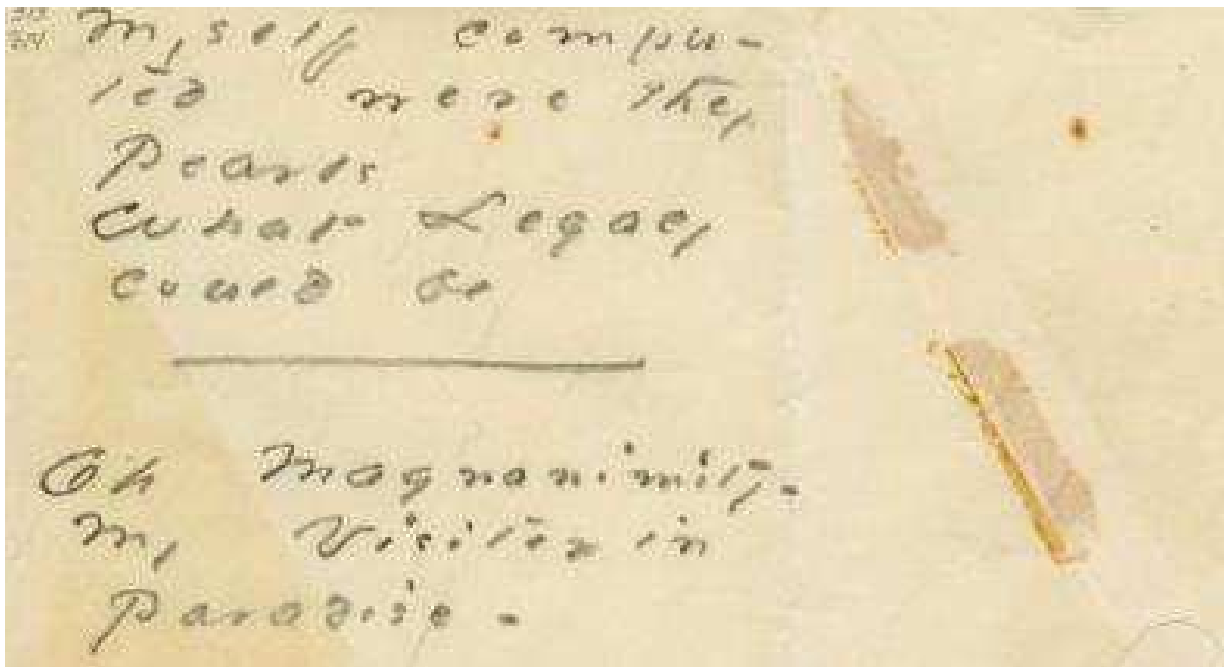 Myself compu-
ted were they
Pearls
What Legacy
could be
Oh Magnanimity -
My Visitor in
Paradise -